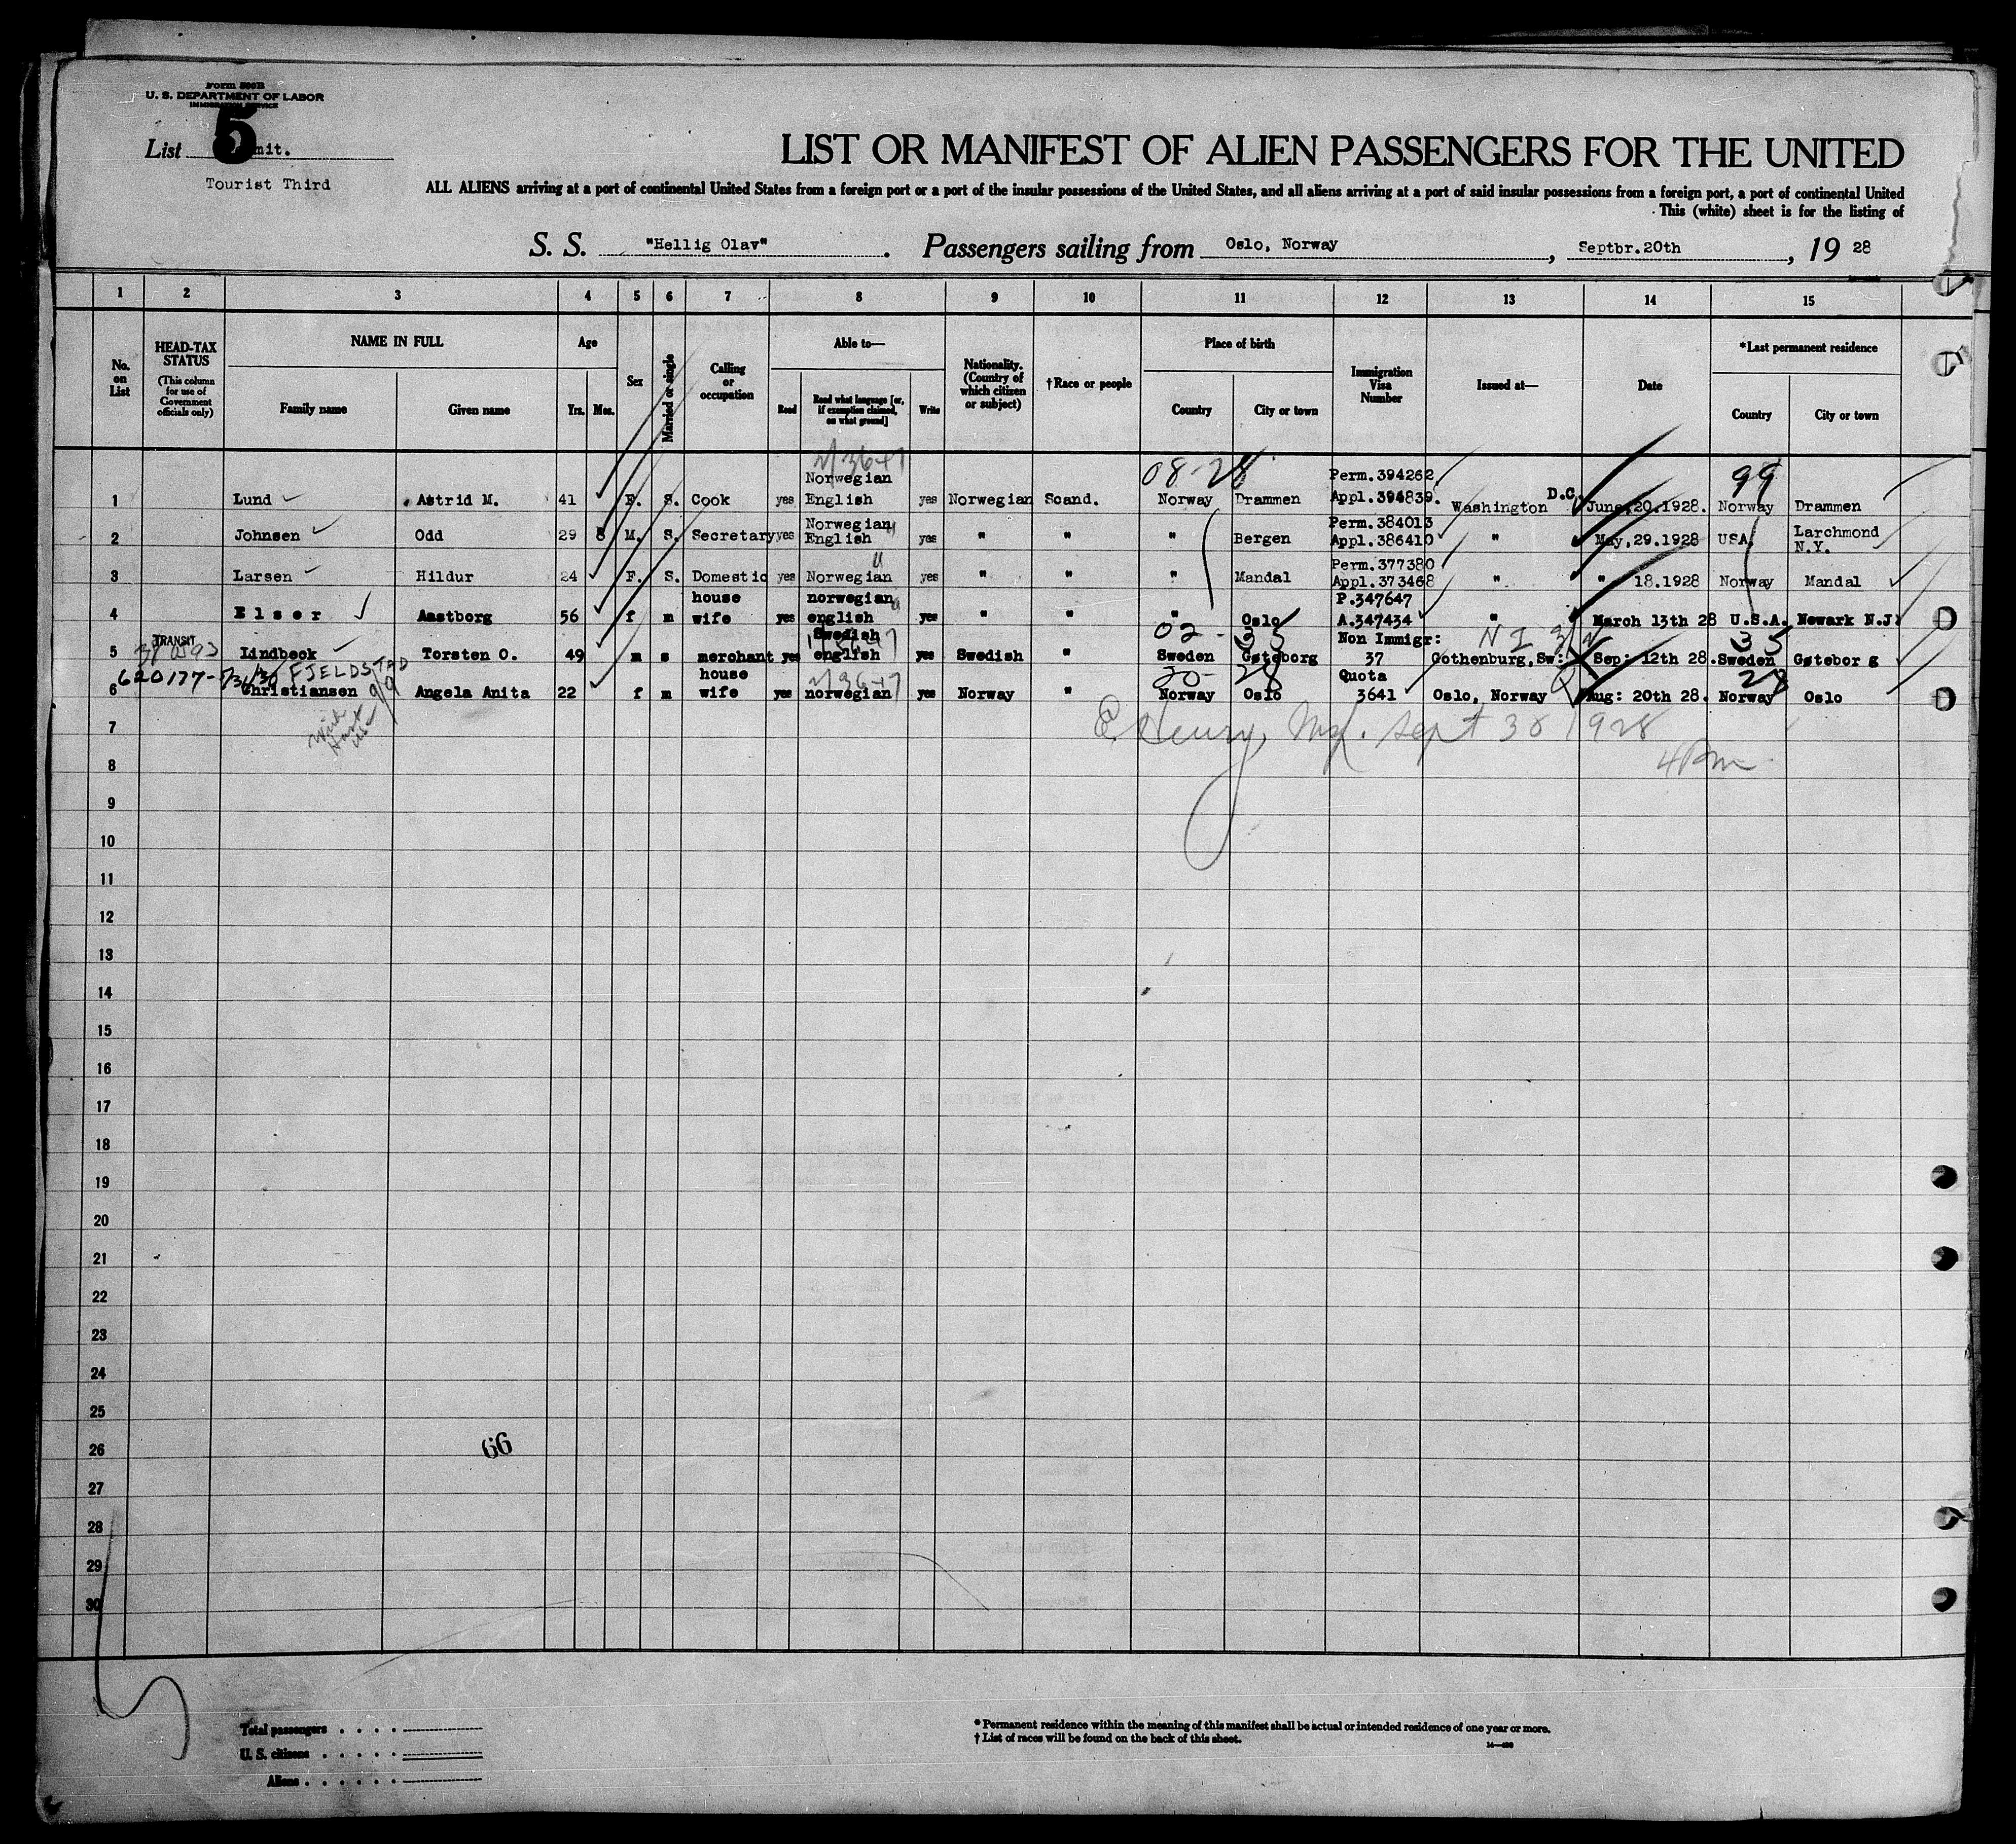 Form 500B
U. S. DEPARTMENT OF LABOR
IMMIGRATION SERVICE
List 5 mit.
Tourist Third
LIST OR MANIFEST OF ALIEN PASSENGERS FOR THE UNITED
ALL ALIENS arriving at a port of continental United States from a foreign port or a port of the insular possessions of the United States, and all aliens arriving at a port of said insular possessions from a foreign port, a port of continental United
This (white) sheet is for the listing of
S. S. "Hellig Olav". Passengers sailing from Oslo, Norway, Septbr.20th, 19 28
1 2 3 4 5 6 7 8 9 10 11 12 13 14 15
No. on List
HEAD-TAX STATUS (This column for use of Government officials only)
NAME IN FULL
Family name Given name
Age
Yrs. Mos.
Sex
Married or single
Calling or occupation
Able to—
Read Read what language [or, if exemption claimed, on what ground] Write
Nationality. (Country of which citizen or subject)
†Race or people
Place of birth
Country City or town
Immigration Visa Number
Issued at—
Date
*Last permanent residence
Country City or town
08-28 99
Norwegian Perm.394262
1 Lund Astrid M. 41 F. S. Cook yes English yes Norwegian Scand. Norway Drammen Appl.394839. Washington D.C. June,20.1928. Norway Drammen
Norwegian Perm.384013 Larchmond
2 Johnsen Odd 29 8 M. S. Secretary yes English yes " " " Bergen Appl.386410 " May,29.1928 USA N.Y.
Perm.377380
3 Larsen Hildur 24 F. S. Domestic yes Norwegian yes " " " Mandal Appl.373468 " " 18.1928 Norway Mandal
house norwegian P.347647
4 Elser Aastborg 56 f m wife yes english yes " " " Oslo A.347434 " March 13th 28 U.S.A. Newark N.J.
TRANSIT Swedish 02-35 Non Immigr: N I 35
5 Lindbeck Torsten O. 49 m s merchant yes english yes Swedish " Sweden Gøteborg 37 Gothenburg,Sw: Sep: 12th 28. Sweden Gøteborg
620177- FJELDSTAD house 20-28 Quota 28
6 Christiansen Angela Anita 22 f m wife yes norwegian yes Norway " Norway Oslo 3641 Oslo, Norway Aug: 20th 28. Norway Oslo
7 Sept 30 1928
8 4 Pm
9
10
11
12
13
14
15
16
17
18
19
20
21
22
23
24
25
26 66
27
28
29
30
Total passengers
U. S. citizens
Aliens
* Permanent residence within the meaning of this manifest shall be actual or intended residence of one year or more.
† List of races will be found on the back of this sheet.